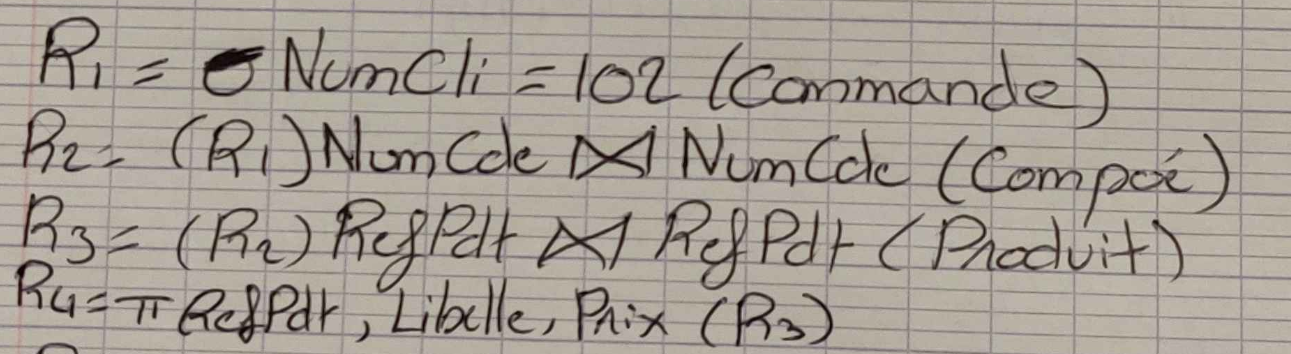 R1 = σ NumCli = 102 (Commande)
R2 = (R1) NumCde ⋈ NumCde (Compoé)
R3 = (R2) RefPdt ⋈ RefPdt (Produit)
R4 = π RefPdt, Libelle, Prix (R3)